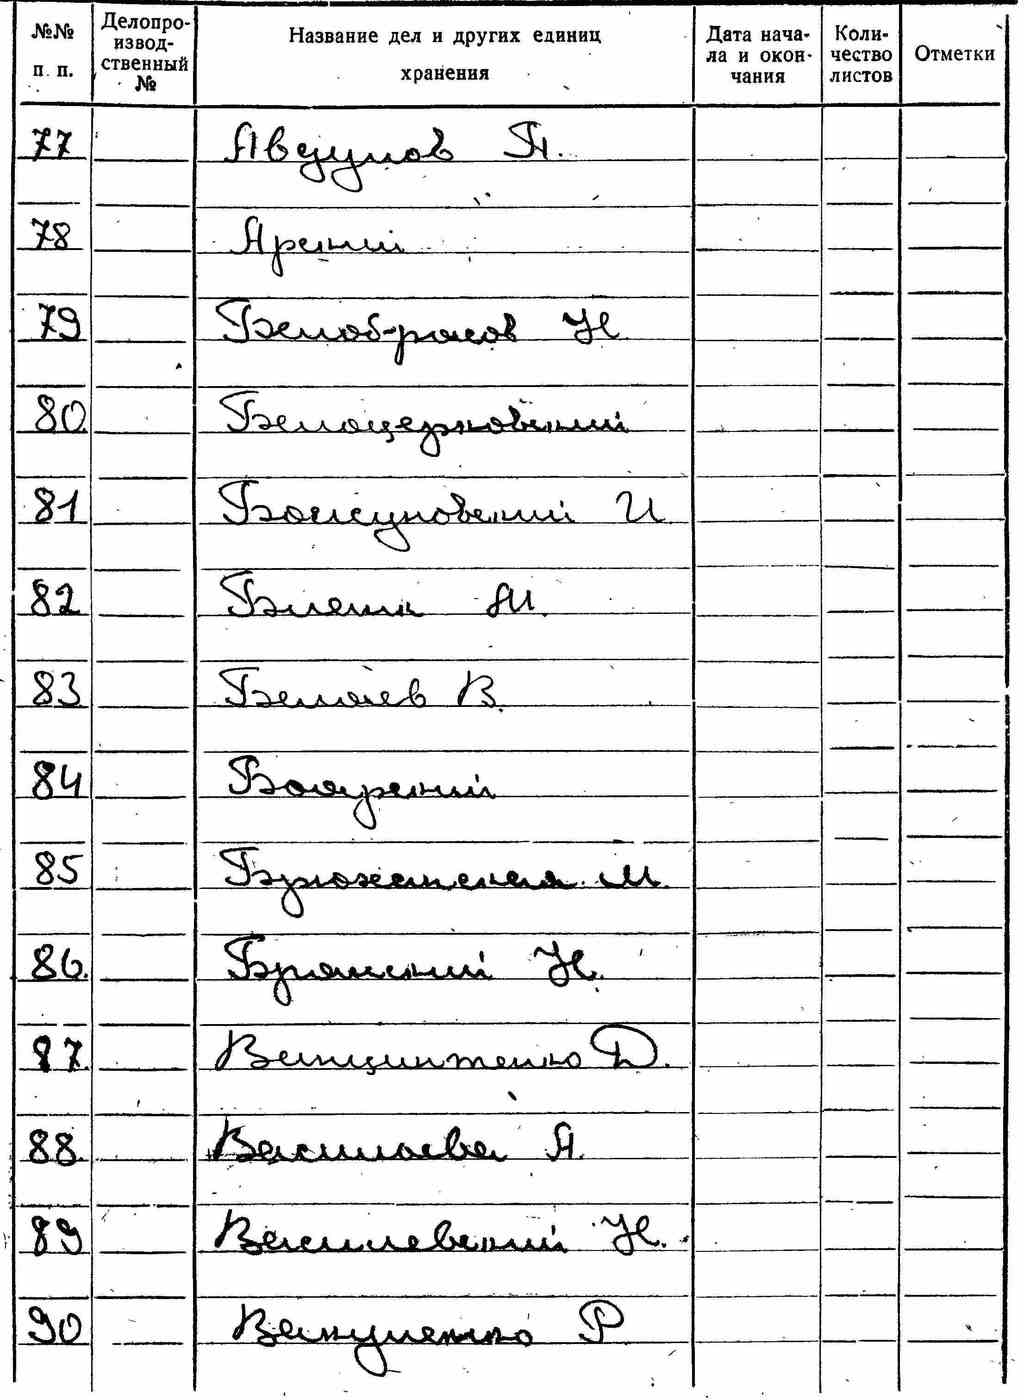 №№ п. п. Делопроизводственный № Название дел и других единиц хранения Дата начала и окончания Количество листов Отметки
77 Авдулов П.
78 Ярский
79 Белобрасов Н
80. Белоцерковский
81 Божуновский И
82 М.
83 Беляев В.
84 Боярский
85 М.
86. Брянский Н.
87. Д.
88. Васильева А.
89 Василевский Н.
90 Вакуленко Р